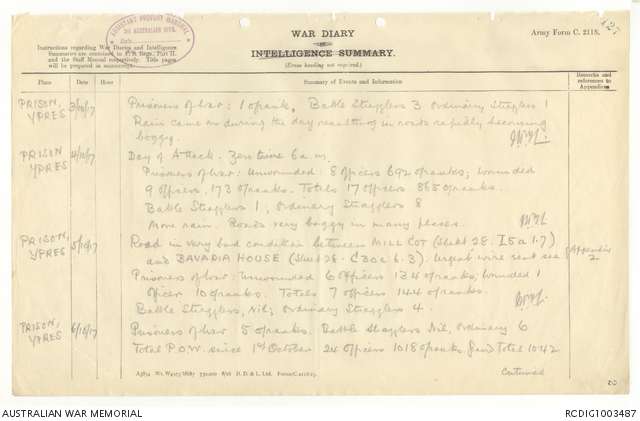 WAR DIARY
or
INTELLIGENCE SUMMARY.
(Erase heading not required.)
Army Form C. 2118.
127
ASSISTANT PROVOST MARSHAL
AUSTRALIAN DIVN.
Instructions regarding War Diaries and Intelligence
Summaries are contained in F. S. Regs., Part II.
and the Staff Manual respectively. Title pages
will be prepared in manuscript.
Place Date Hour Summary of Events and Information Remarks and references to Appendices
PRISON, YPRES 3/10/17 Prisoners of War: 1 o/rank, Battle Stragglers 3 Ordinary Stragglers 1
Rain came on during the day resulting in roads rapidly becoming
boggy.
PRISON YPRES 4/10/17 Day of Attack. Zero time 6 a.m.
Prisoners of War: Unwounded 8 officers 692 o/ranks; wounded
9 officers, 173 o/ranks. Totals 17 officers 865 o/ranks.
Battle Stragglers 1, Ordinary Stragglers 8
More rain. Roads very boggy in many places.
PRISON, YPRES 5/10/17 Road in very bad condition between MILL COT (Sheet 28. I5a 1.7)
and BAVARIA HOUSE (Sheet 28 - C30c 6.3). Urgent wire sent see Appendix 2
Prisoners of War: Unwounded 6 officers 134 o/ranks, wounded 1
officer 10 o/ranks. Totals 7 officers 144 o/ranks.
Battle Stragglers, Nil; Ordinary Stragglers 4.
PRISON, YPRES 6/10/17 Prisoners of War 5 o/ranks. Battle Stragglers Nil, ordinary 6
Total P.O.W. since 1st October 24 officers 1018 o/ranks. Grand Total 1042
Continued
2
AUSTRALIAN WAR MEMORIAL
RCDIG1003487